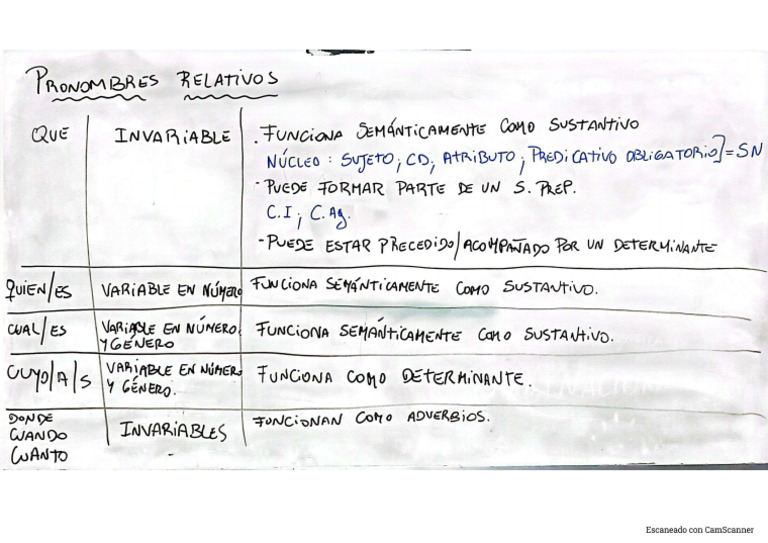 PRONOMBRES RELATIVOS
QUE
INVARIABLE
. FUNCIONA SEMÁNTICAMENTE COMO SUSTANTIVO
NÚCLEO: SUJETO; CD; ATRIBUTO; PREDICATIVO OBLIGATORIO] = SN
- PUEDE FORMAR PARTE DE UN S. PREP.
C.I; C.Ag.
- PUEDE ESTAR PRECEDIDO/ACOMPAÑADO POR UN DETERMINANTE
QUIEN/ES
VARIABLE EN NÚMERO
FUNCIONA SEMÁNTICAMENTE COMO SUSTANTIVO.
CUAL/ES
VARIABLE EN NÚMERO
Y GÉNERO
FUNCIONA SEMÁNTICAMENTE COMO SUSTANTIVO.
CUYO/A/S
VARIABLE EN NÚMERO
Y GÉNERO.
FUNCIONA COMO DETERMINANTE.
DONDE
CUANDO
CUANTO
INVARIABLES
FUNCIONAN COMO ADVERBIOS.
Escaneado con CamScanner